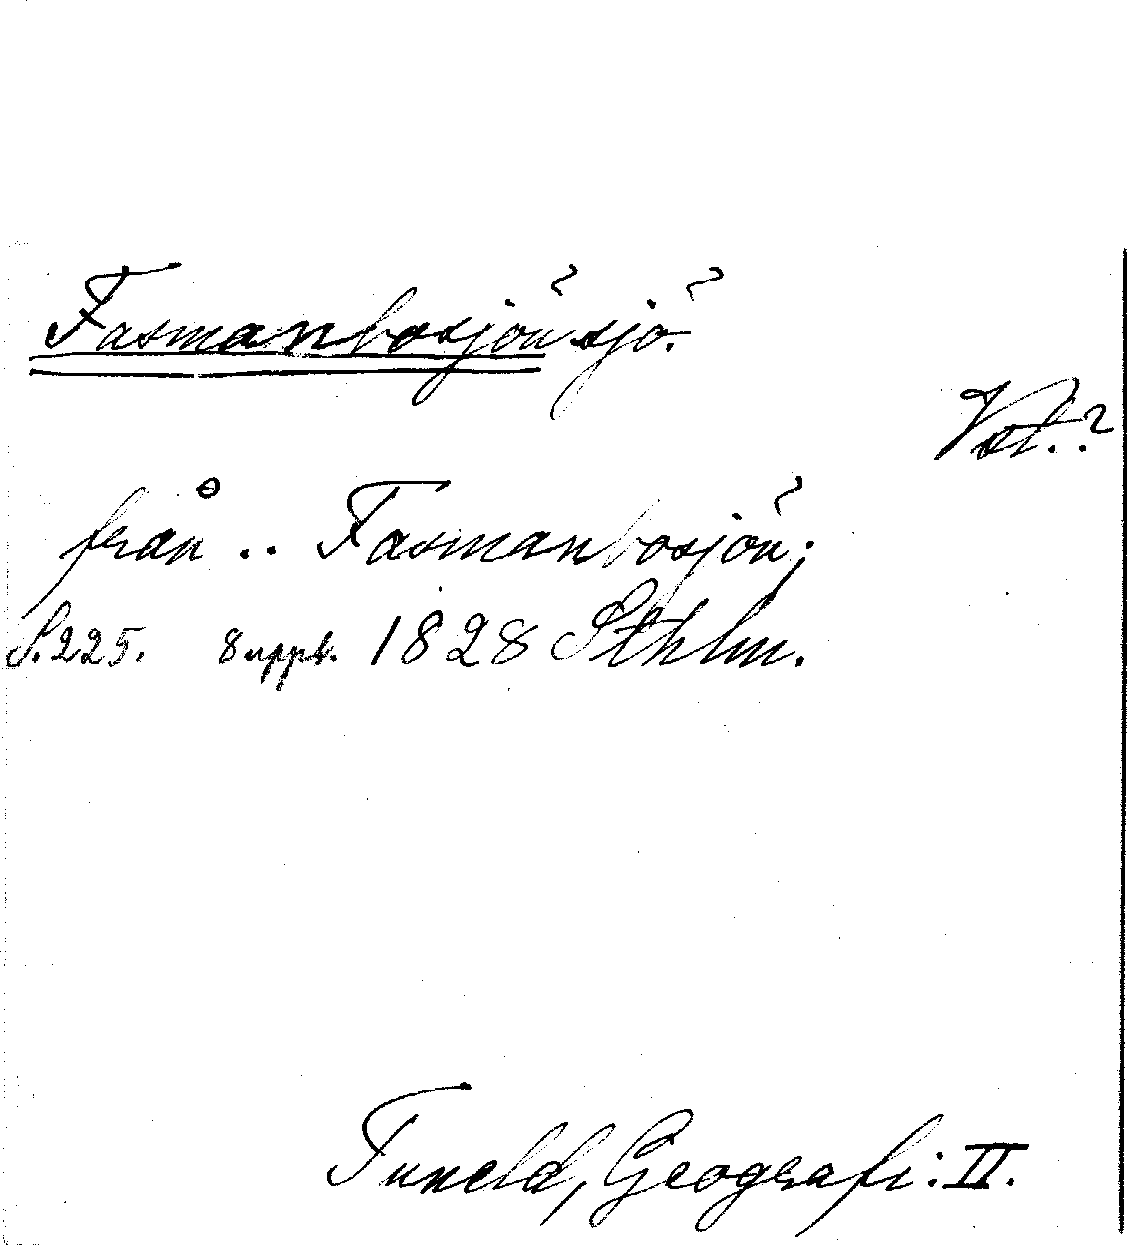 Fasmanbosjön sjö.
Vstl.?
från .. Fasmanbosjön;
S.225. 8 uppl. 1828 Sthlm.
Tuneld, Geografi. II.